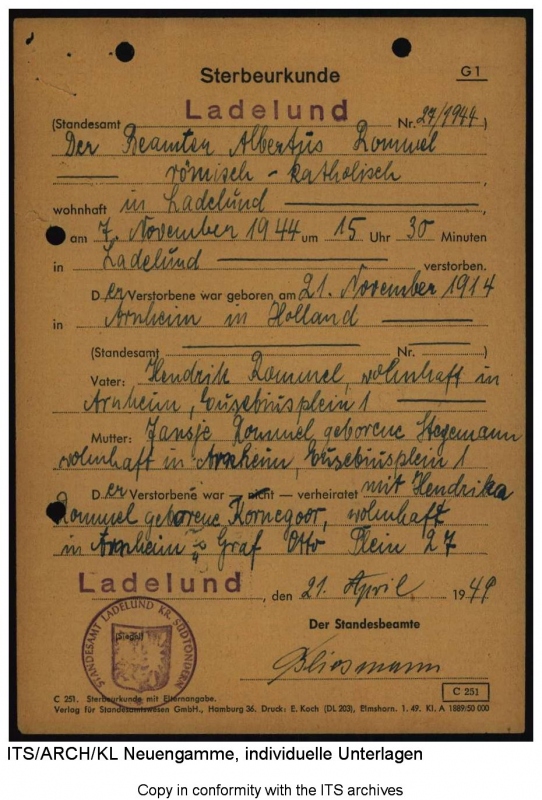 Sterbeurkunde
G 1
(Standesamt Ladelund Nr. 27/1944)
Der Beamten Albertus Rommel
römisch - katholisch
wohnhaft in Ladelund
am 7. November 1944 um 15 Uhr 30 Minuten
in Ladelund verstorben.
D er Verstorbene war geboren am 21. November 1914
in Arnheim in Holland
(Standesamt Nr. )
Vater: Hendrik Rommel, wohnhaft in
Arnheim, Eusebiusplein 1
Mutter: Jansje Rommel geborene Stegemann
wohnhaft in Arnheim, Eusebiusplein 1
D er Verstorbene war — nicht — verheiratet mit Hendrika
Rommel geborene Kornegoor, wohnhaft
in Arnheim Graf Otto Plein 27
Ladelund, den 21. April 1949
Der Standesbeamte
STANDESAMT LADELUND KR. SÜDTONDERN
(Siegel)
C 251
C 251. Sterbeurkunde mit Elternangabe.
Verlag für Standesamtswesen GmbH., Hamburg 36. Druck: E. Koch (DL 203), Elmshorn. 1. 49. Kl. A 1889/50 000
ITS/ARCH/KL Neuengamme, individuelle Unterlagen
Copy in conformity with the ITS archives